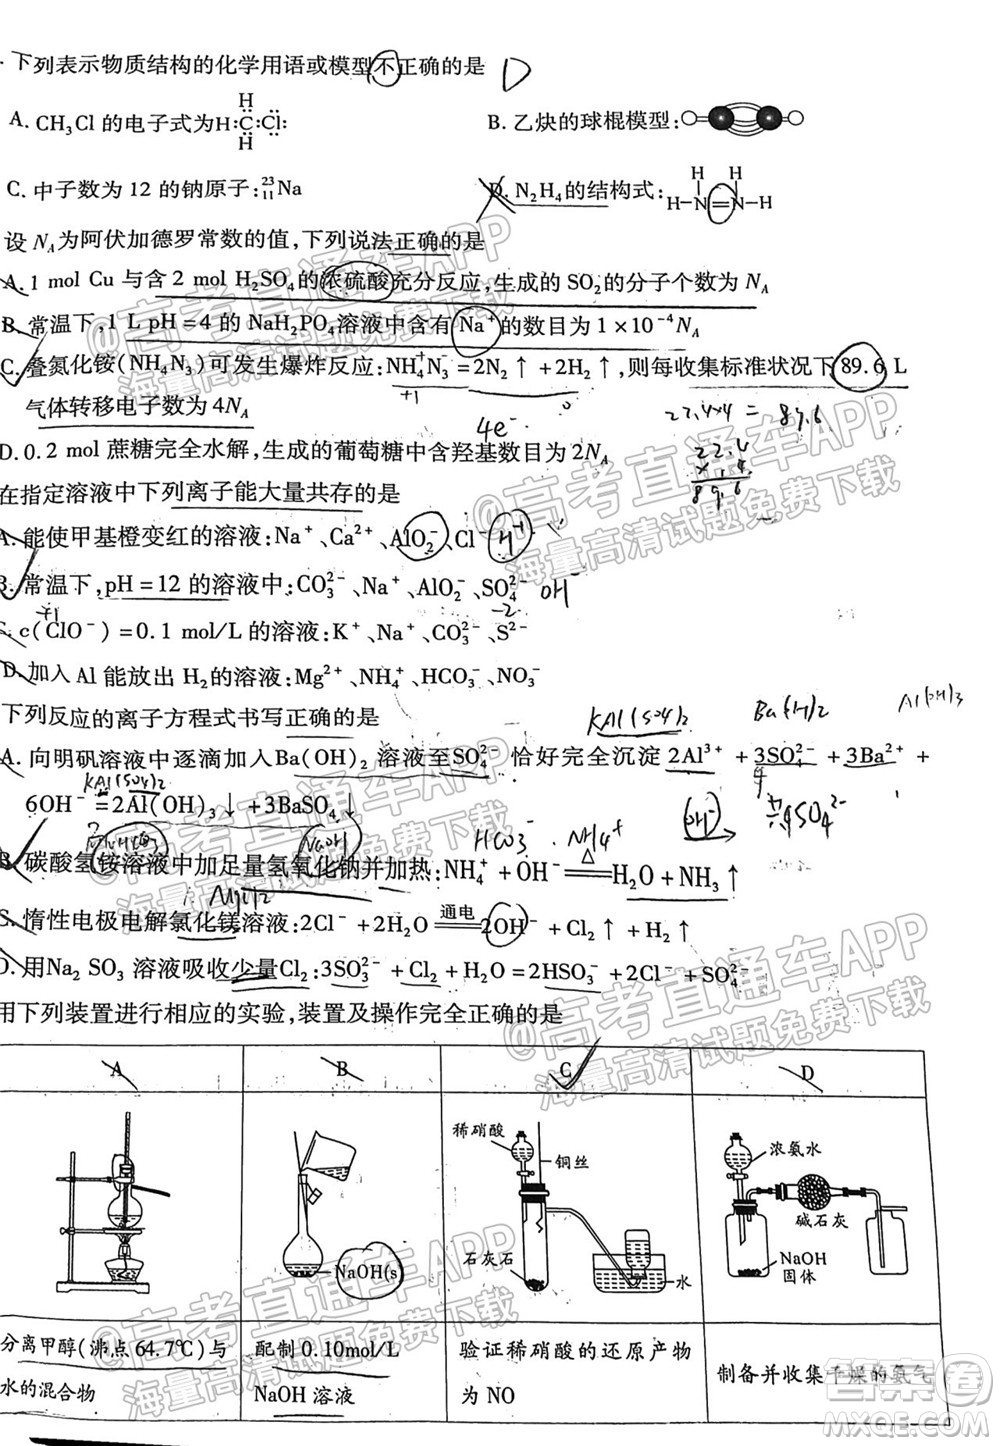 下列表示物质结构的化学用语或模型不正确的是 D
A. CH₃Cl的电子式为H:C:Cl: H H
B. 乙炔的球棍模型:
C. 中子数为 12 的钠原子:²³₁₁Na
D. N₂H₄的结构式: H H H-N=N-H
设 N_A为阿伏加德罗常数的值,下列说法正确的是
A. 1 mol Cu 与含 2 mol H₂SO₄的浓硫酸充分反应,生成的 SO₂的分子个数为 N_A
B. 常温下,1 L pH=4 的 NaH₂PO₄溶液中含有 Na⁺的数目为 1×10⁻⁴N_A
C. 叠氮化铵(NH₄N₃)可发生爆炸反应:NH₄⁺N₃⁻=2N₂↑+2H₂↑,则每收集标准状况下 89.6 L
+1 0
气体转移电子数为 4N_A
4e⁻ 22.4×4 = 89.6
22.4
× 4
89.6
D. 0.2 mol 蔗糖完全水解,生成的葡萄糖中含羟基数目为 2N_A
在指定溶液中下列离子能大量共存的是
A. 能使甲基橙变红的溶液:Na⁺、Ca²⁺、AlO₂⁻、Cl⁻ H⁺
B. 常温下,pH=12 的溶液中:CO₃²⁻、Na⁺、AlO₂⁻、SO₄²⁻ OH⁻
+1 -2
C. c(ClO⁻)=0.1 mol/L 的溶液:K⁺、Na⁺、CO₃²⁻、S²⁻
D. 加入 Al 能放出 H₂的溶液:Mg²⁺、NH₄⁺、HCO₃⁻、NO₃⁻
下列反应的离子方程式书写正确的是
KAl(SO4)2 Ba(H)2 Al(OH)3
A. 向明矾溶液中逐滴加入Ba(OH)₂ 溶液至SO₄²⁻ 恰好完全沉淀 2Al³⁺ +3SO₄²⁻ +3Ba²⁺ +
KAl(SO4)2
6OH⁻=2Al(OH)₃↓+3BaSO₄↓ OH⁻ 4SO₄²⁻
NaOH HCO₃⁻ NH₄⁺
B. 碳酸氢铵溶液中加足量氢氧化钠并加热:NH₄⁺+OH⁻ △ H₂O+NH₃↑
MgCl2
C. 惰性电极电解氯化镁溶液:2Cl⁻+2H₂O 通电 2OH⁻+Cl₂↑+H₂↑
D. 用Na₂ SO₃ 溶液吸收少量Cl₂:3SO₃²⁻+Cl₂+H₂O=2HSO₃⁻+2Cl⁻+SO₄²⁻
用下列装置进行相应的实验,装置及操作完全正确的是
A B C D
NaOH(s)
稀硝酸
铜丝
石灰石
水
浓氨水
碱石灰
NaOH
固体
分离甲醇(沸点 64.7℃)与
水的混合物
配制 0.10mol/L
NaOH 溶液
验证稀硝酸的还原产物
为 NO
制备并收集干燥的氨气
@高考直通车APP
海量高清试题免费下载
@高考直通车APP
海量高清试题免费下载
@高考直通车APP
海量高清试题免费下载
@高考直通车APP
海量高清试题免费下载
@高考直通车APP
海量高清试题免费下载
答案圈
MXQE.COM